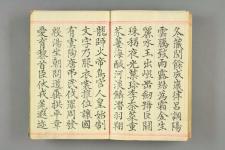 冬藏閏餘成歲律呂調陽
雲騰致雨露結為霜金生
麗水玉出崑岡劍號巨闕
珠稱夜光菓珍李柰菜重
芥薑海鹹河淡鱗潛羽翔
龍師火帝鳥官人皇始制
文字乃服衣裳推位讓國
有虞陶唐弔民伐罪周發
殷湯坐朝問道垂拱平章
愛育黎首臣伏戎羌遐邇